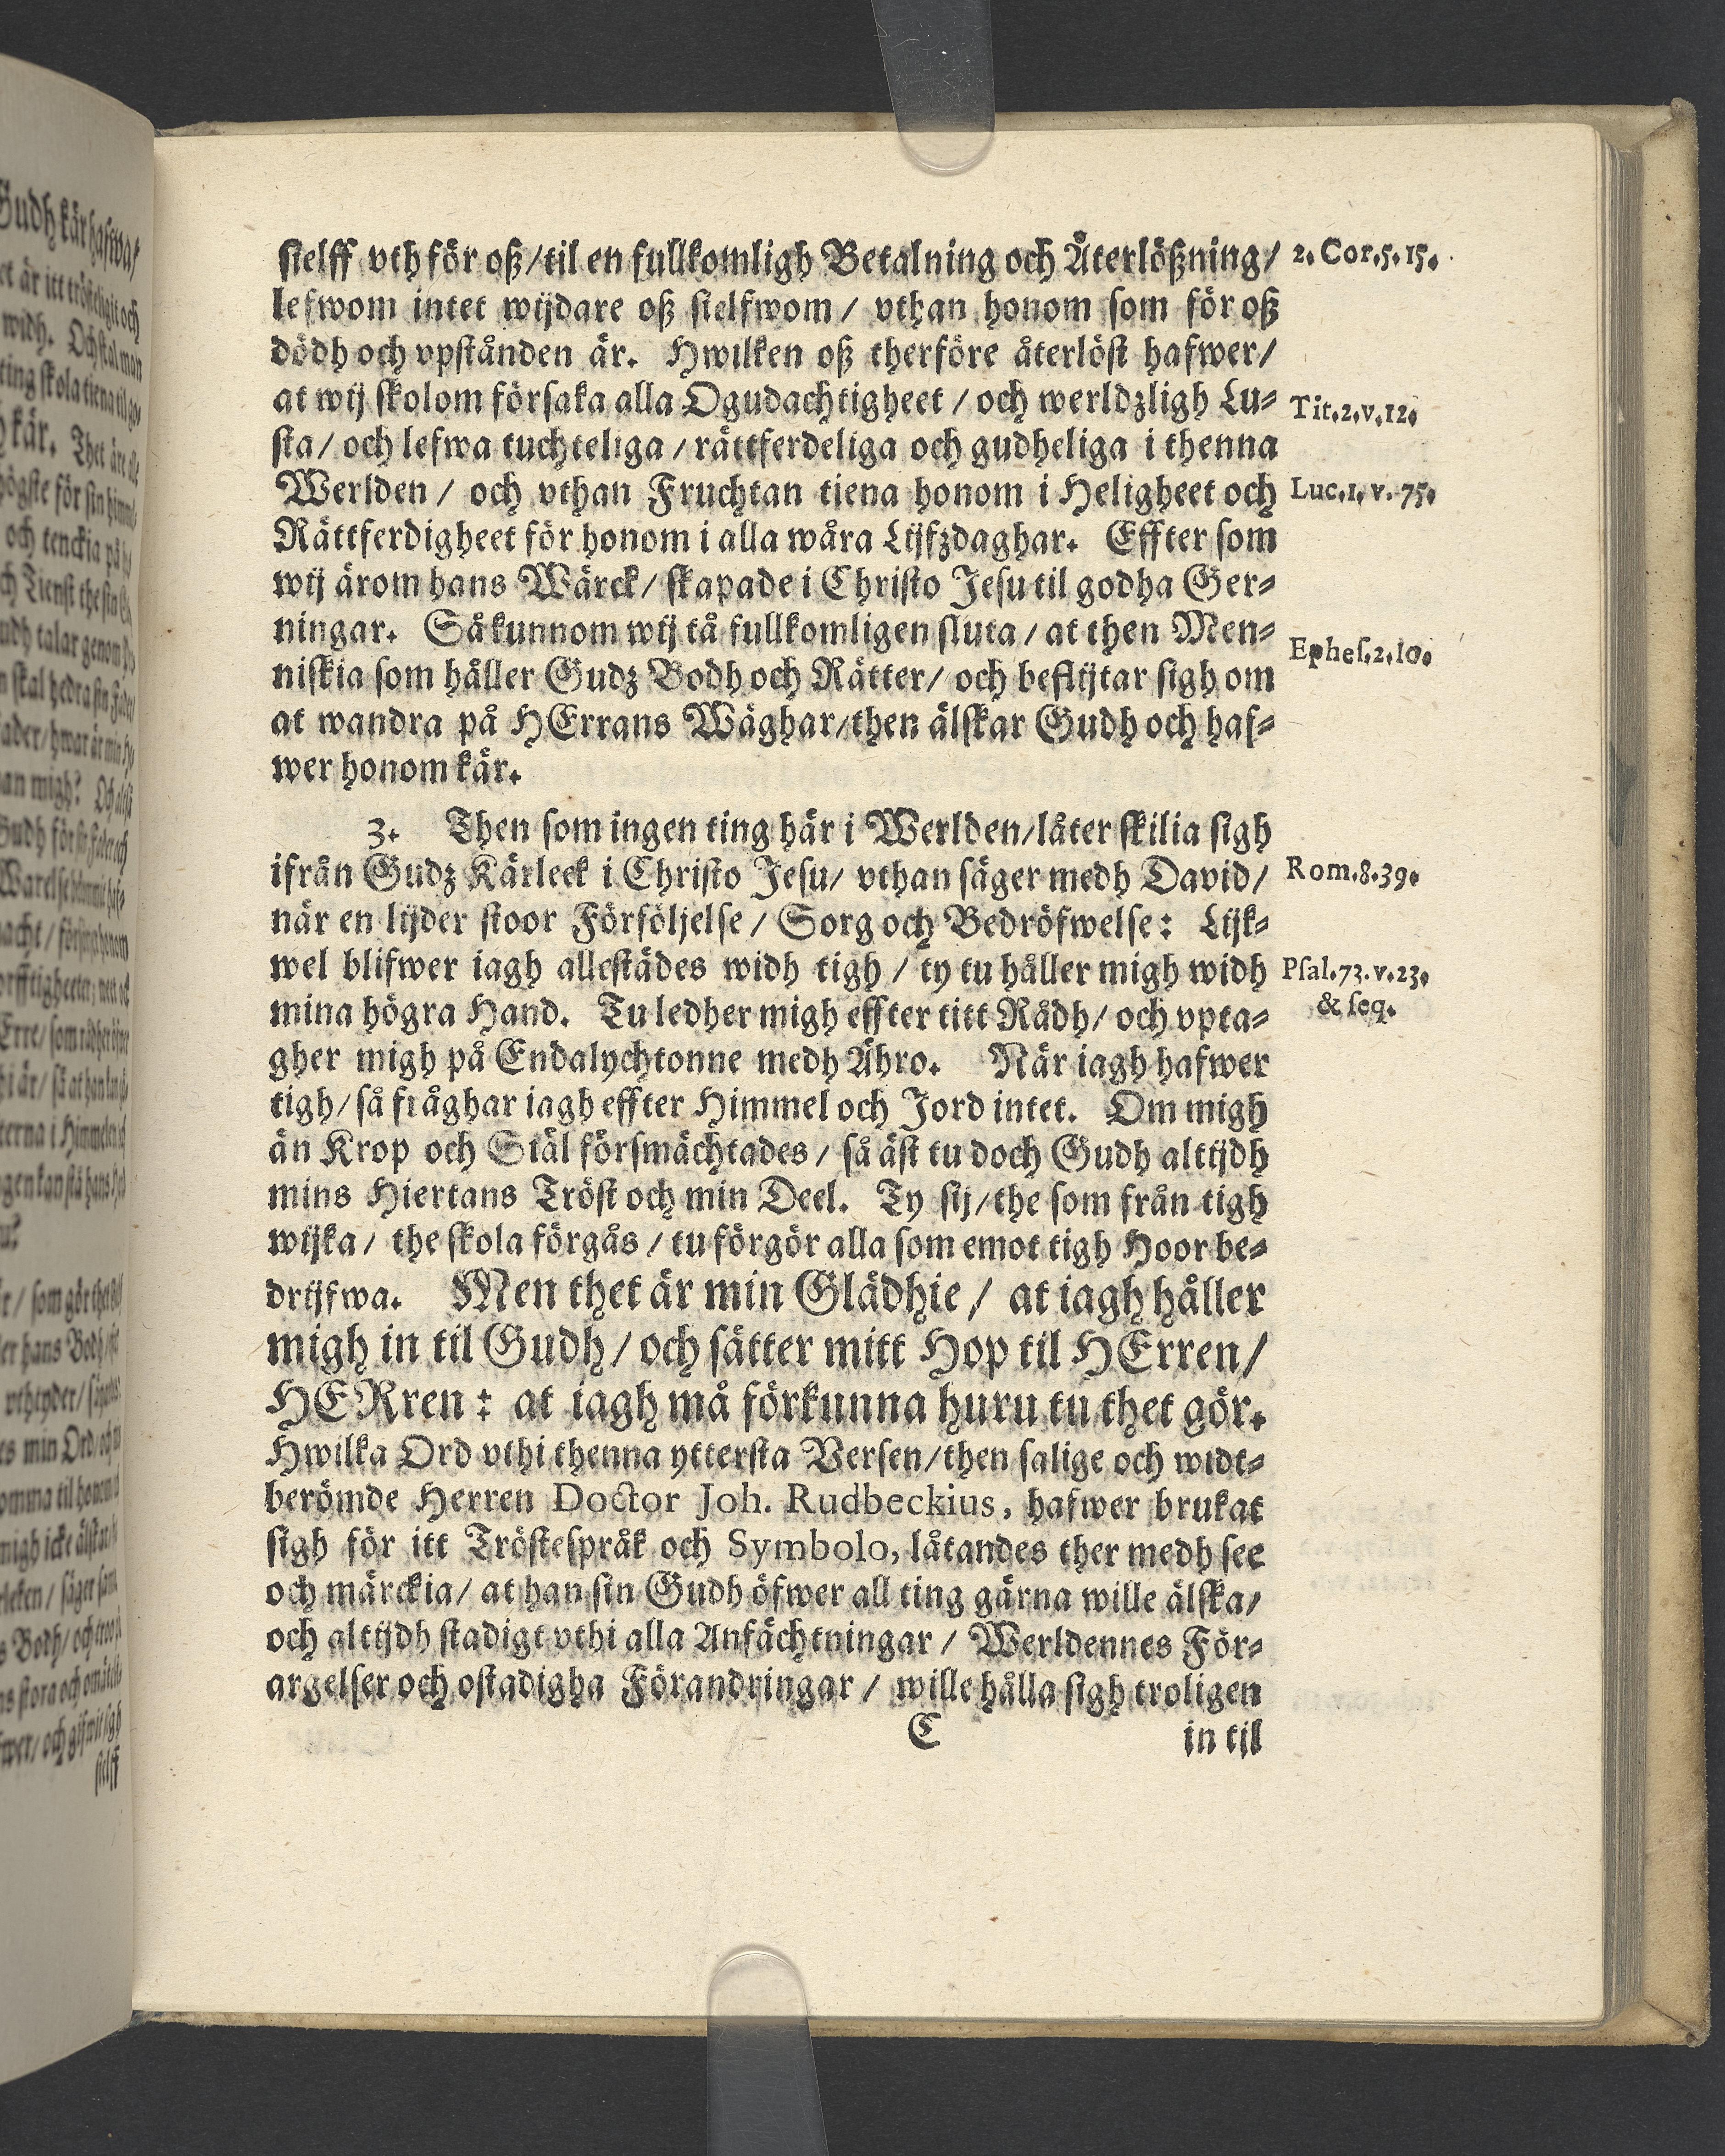 sielff vth för oß/til en fullkomligh Betalning och Återlößning/ 2. Cor.5.15.
lefwom intet wijdare oß sielfwom/ vthan honom som för oß
dödh och vpstånden är. Hwilken oß therföre återlöst hafwer/
at wij skolom försaka alla Ogudachtigheet/ och werldzligh Lu⸗ Tit.2.v.12.
sta/ och lefwa tuchteliga/ rättferdeliga och gudheliga i thenna
Werlden/ och vthan Fruchtan tiena honom i Heligheet och Luc.1. v. 75.
Rättferdigheet för honom i alla wåra Lijfzdaghar. Effter som
wij ärom hans Wärck/ skapade i Christo Jesu til godha Ger⸗
ningar. Så kunnom wij tå fullkomligen sluta/ at then Men⸗ Ephes.2.10.
niskia som håller Gudz Bodh och Rätter/ och beflijtar sigh om
at wandra på HErrans Wäghar/then älskar Gudh och haf⸗
wer honom kär.
3. Then som ingen ting här i Werlden/låter skilia sigh
ifrån Gudz Kärleek i Christo Jesu/ vthan säger medh David/ Rom.8.39.
när en lijder stoor Förföljelse/ Sorg och Bedröfwelse: Lijk⸗
wel blifwer iagh allestädes widh tigh/ ty tu håller migh widh Psal.73.v.23.
mina högra Hand. Tu ledher migh effter titt Rådh/ och vpta⸗ & seq.
gher migh på Endalychtonne medh Ähro. När iagh hafwer
tigh/så fråghar iagh effter Himmel och Jord intet. Om migh
än Krop och Siäl försmächtades/ så äst tu doch Gudh altijdh
mins Hiertans Tröst och min Deel. Ty sij/the som från tigh
wijka/ the skola förgås/ tu förgör alla som emot tigh Hoor be⸗
drijfwa. Men thet är min Glädhie/ at iagh håller
migh in til Gudh/och sätter mitt Hop til HErren/
HERren: at iagh må förkunna huru tu thet gör.
Hwilka Ord vthi thenna yttersta Versen/then salige och widt⸗
berömde Herren Doctor Joh. Rudbeckius, hafwer brukat
sigh för itt Tröstespråk och Symbolo, låtandes ther medh see
och märckia/ at han sin Gudh öfwer all ting gärna wille älska/
och altijdh stadigt vthi alla Anfächtningar/ Werldennes För⸗
argelser och ostadigha Förandringar/ wille hålla sigh troligen
C in til